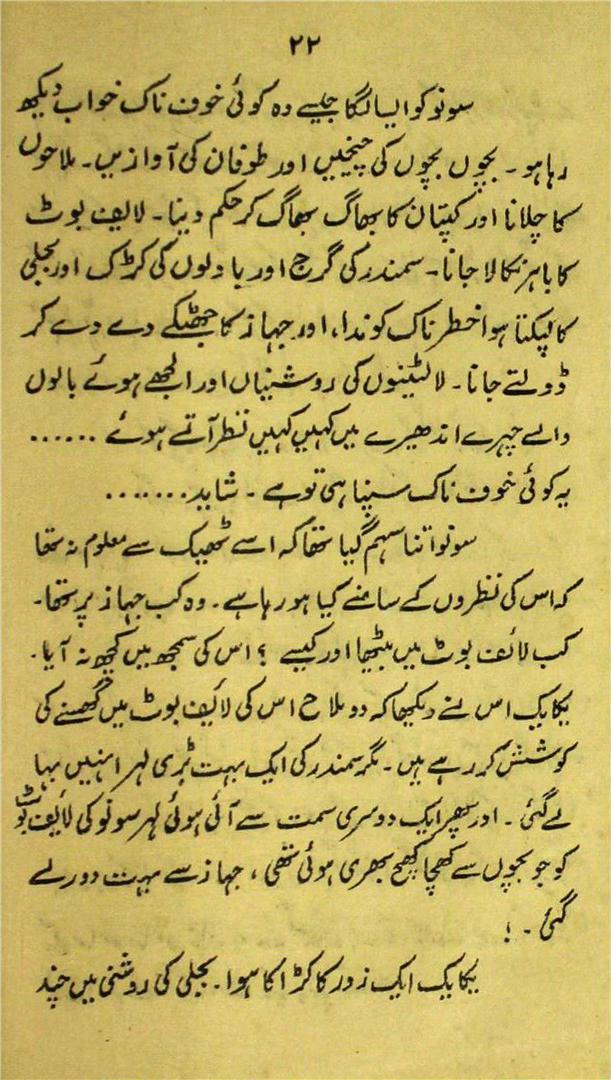 ۲۲
سونو کو ایسا لگا جیسے وہ کوئی خوف ناک خواب دیکھ
رہا ہو۔ بچوں بچوں کی چیخیں اور طوفان کی آوازیں۔ ملاحوں
کا چلانا اور کپتان کا بھاگ بھاگ کر حکم دینا۔ لائیف بوٹ
کا باہر نکالا جانا۔ سمندر کی گرج اور بادلوں کی کڑک اور بجلی
کا لپکتا ہوا خطرناک کوندا، اور جہاز کا جھٹکے دے دے کر
ڈولتے جانا۔ لالٹینوں کی روشنیاں اور الجھے ہوئے بالوں
والے چہرے اندھیرے میں کہیں کہیں نظر آتے ہوئے ......
یہ کوئی خوف ناک سپنا ہی تو ہے۔ شاید.......
سونو اتنا سہم گیا تھا کہ اسے ٹھیک سے معلوم نہ تھا
کہ اس کی نظروں کے سامنے کیا ہو رہا ہے۔ وہ کب جہاز پر تھا۔
کب لائف بوٹ میں بیٹھا اور کیسے ؟ اس کی سمجھ میں کچھ نہ آیا۔
یکایک اس نے دیکھا کہ دو ملاح اس کی لائیف بوٹ میں گھسنے کی
کوشش کر رہے ہیں۔ مگر سمندر کی ایک بہت بڑی لہر انہیں بہا
لے گئی۔ اور پھر ایک دوسری سمت سے آئی ہوئی لہر سونو کی لائیف بوٹ
کو جو بچوں سے کھچا کھچ بھری ہوئی تھی، جہاز سے بہت دور لے
گئی۔!
یکایک ایک زور کا کڑاکا ہوا۔ بجلی کی روشنی میں چند